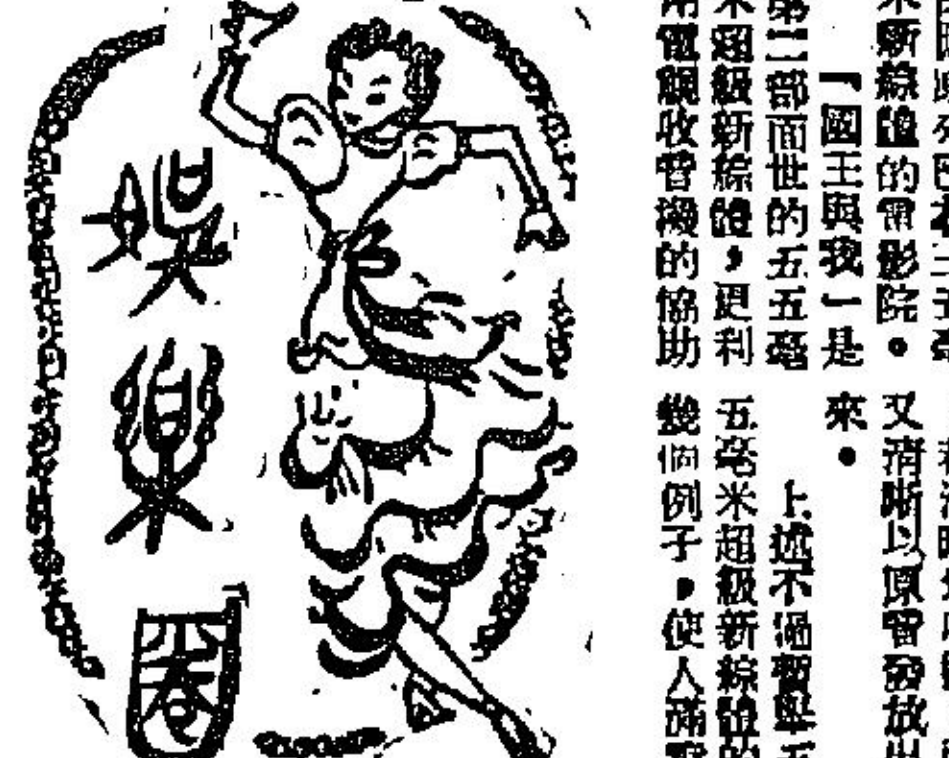 米新綜體的電影院。
『國王與我』是
第二部面世的五五毫
米超級新綜體，更利
用電收音機的協助
又清晰以原音發放出
來。
上述不過暫舉五
五毫米超級新綜體的
幾個例子，使人滿
娛樂圈